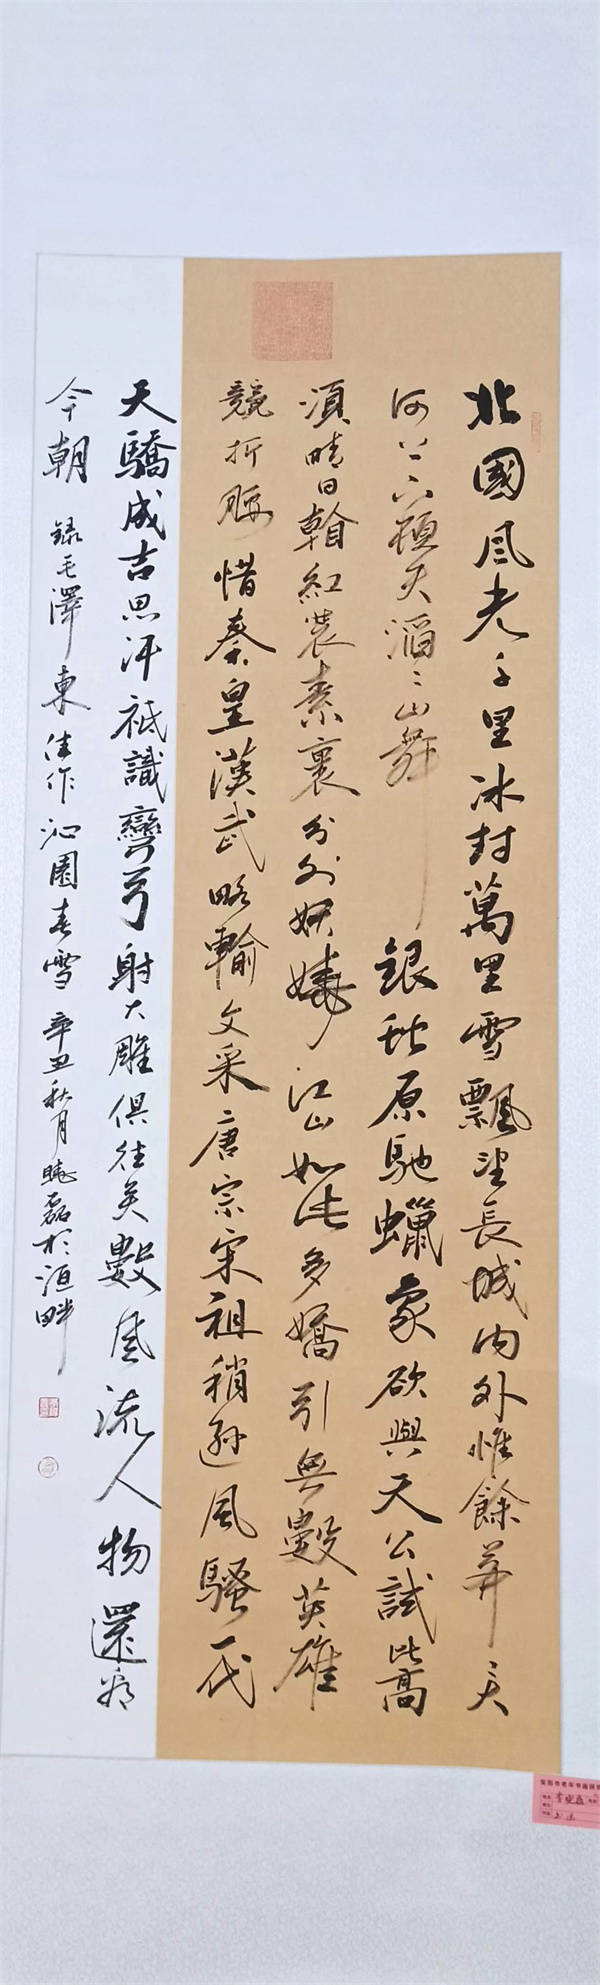 北國風光千里冰封萬里雪飄望長城内外惟餘莽〻大
河上下頓失滔〻山舞銀蛇原馳蠟象欲與天公試比高
須晴日看紅裝素裹分外妖嬈江山如此多嬌引無數英雄
競折腰惜秦皇漢武略輸文采唐宗宋祖稍遜風騷一代
天驕成吉思汗祗識彎弓射大雕俱往矣數風流人物還看
今朝 錄毛澤東佳作沁園春雪 辛丑秋月曉磊於洹畔
安阳市老年书画研